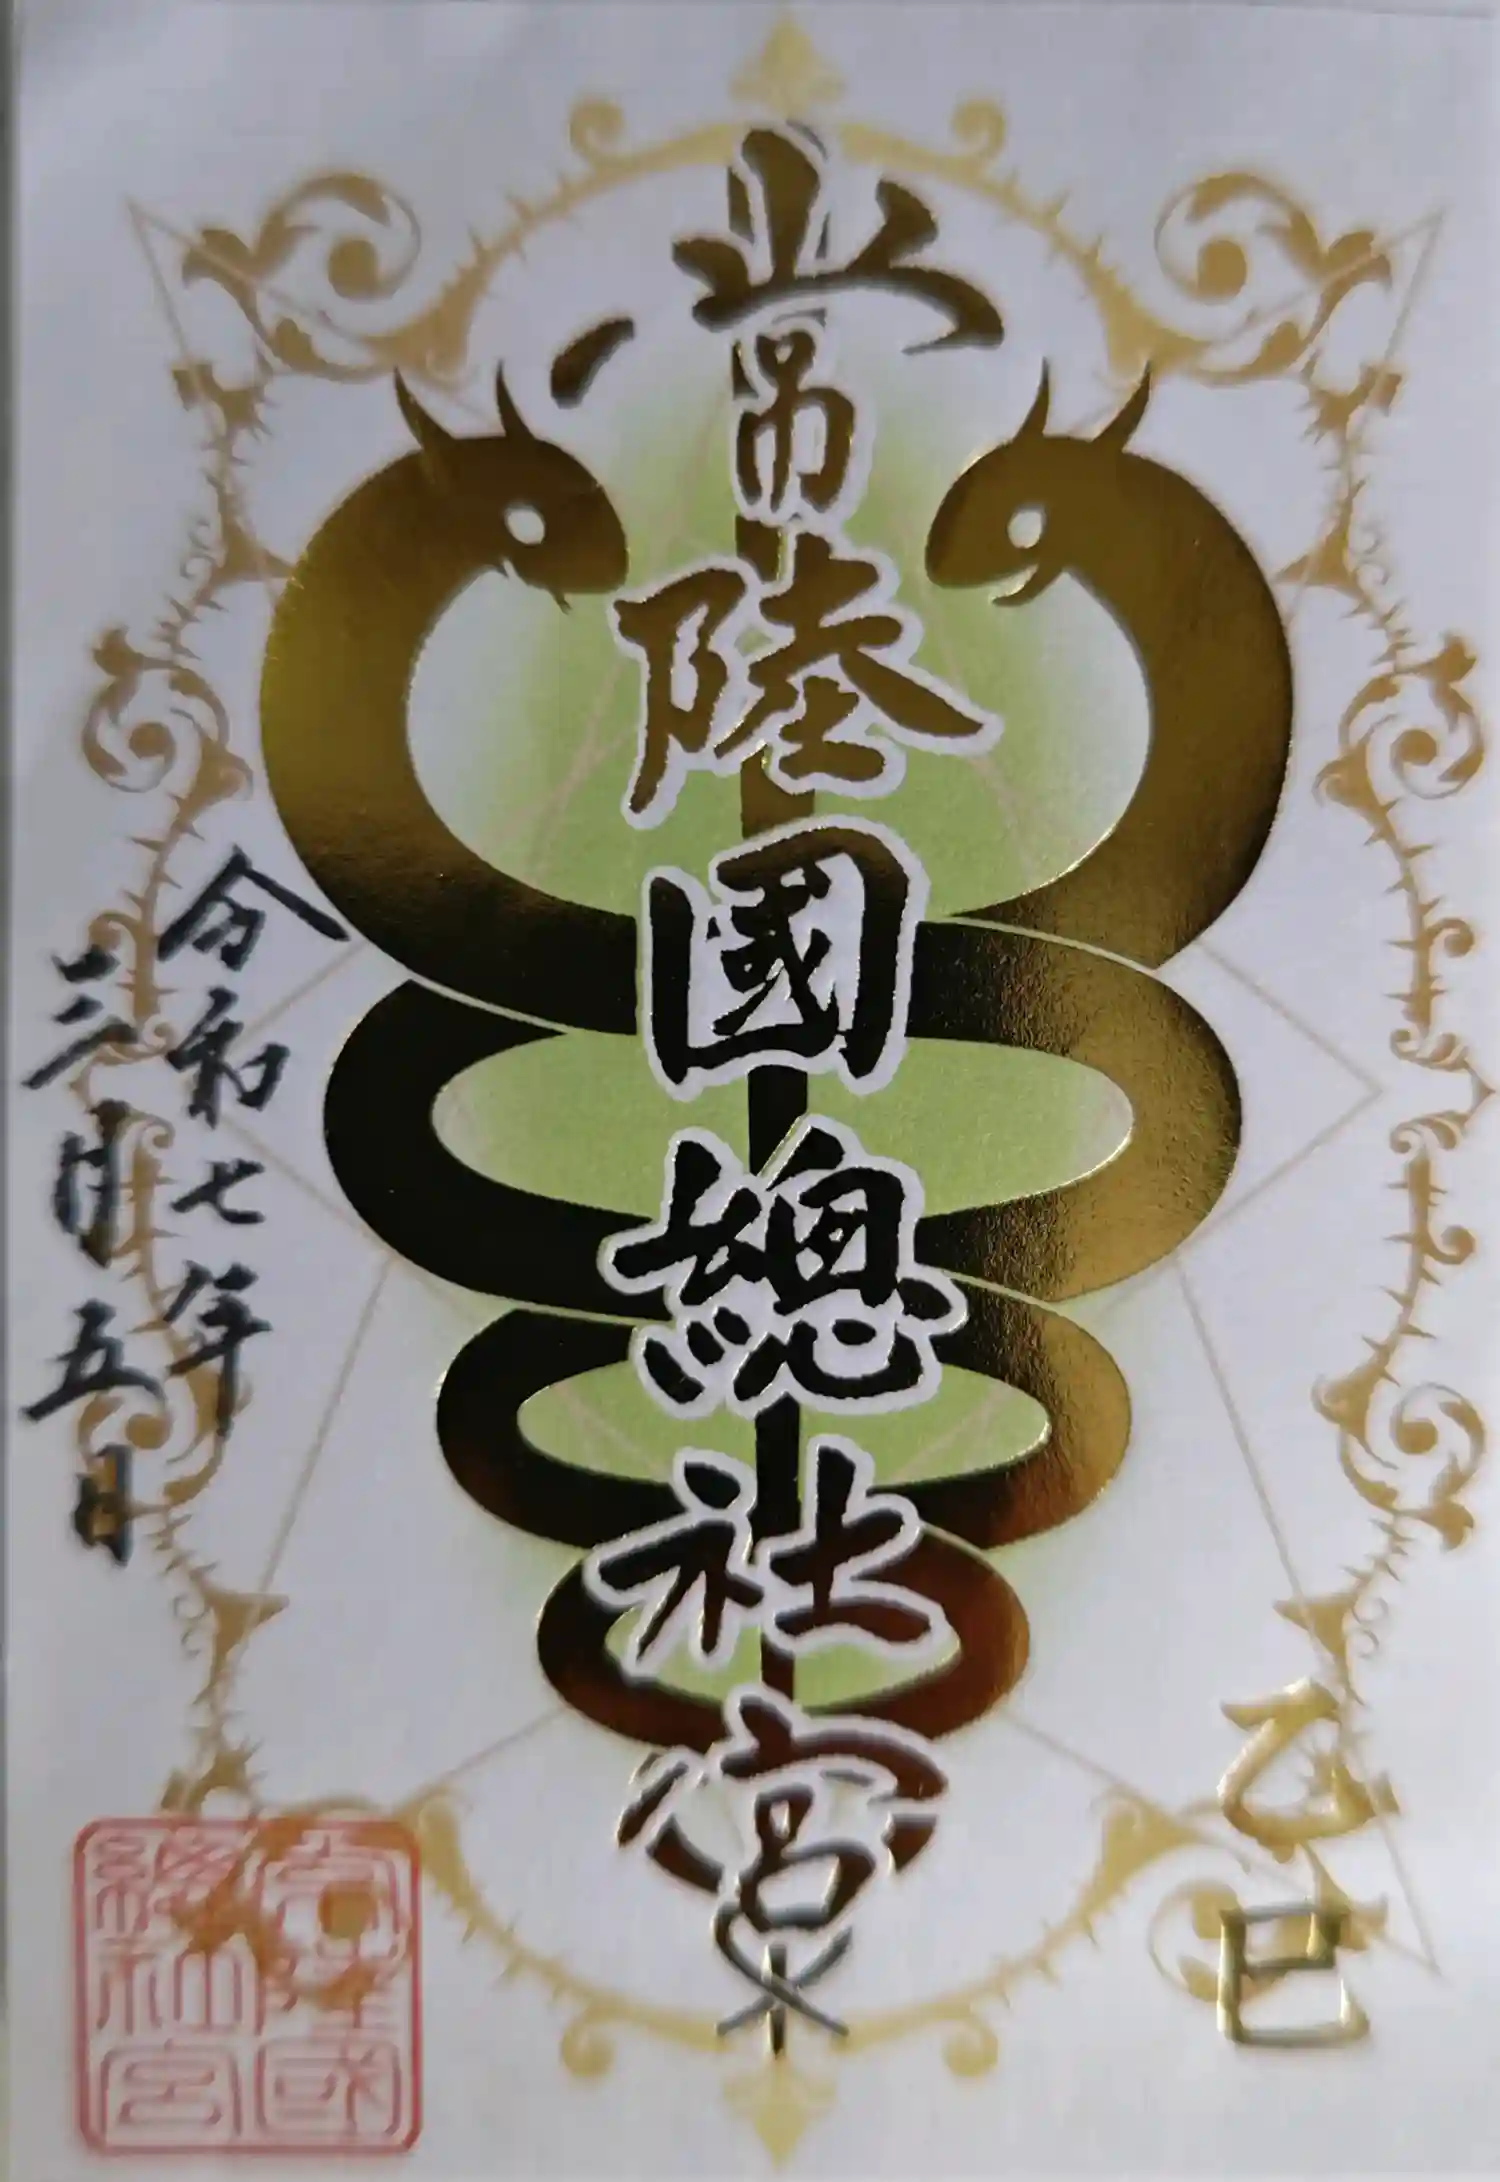 乙巳
常陸國總社宮
令和七年
三月五日
常陸國
總社宮